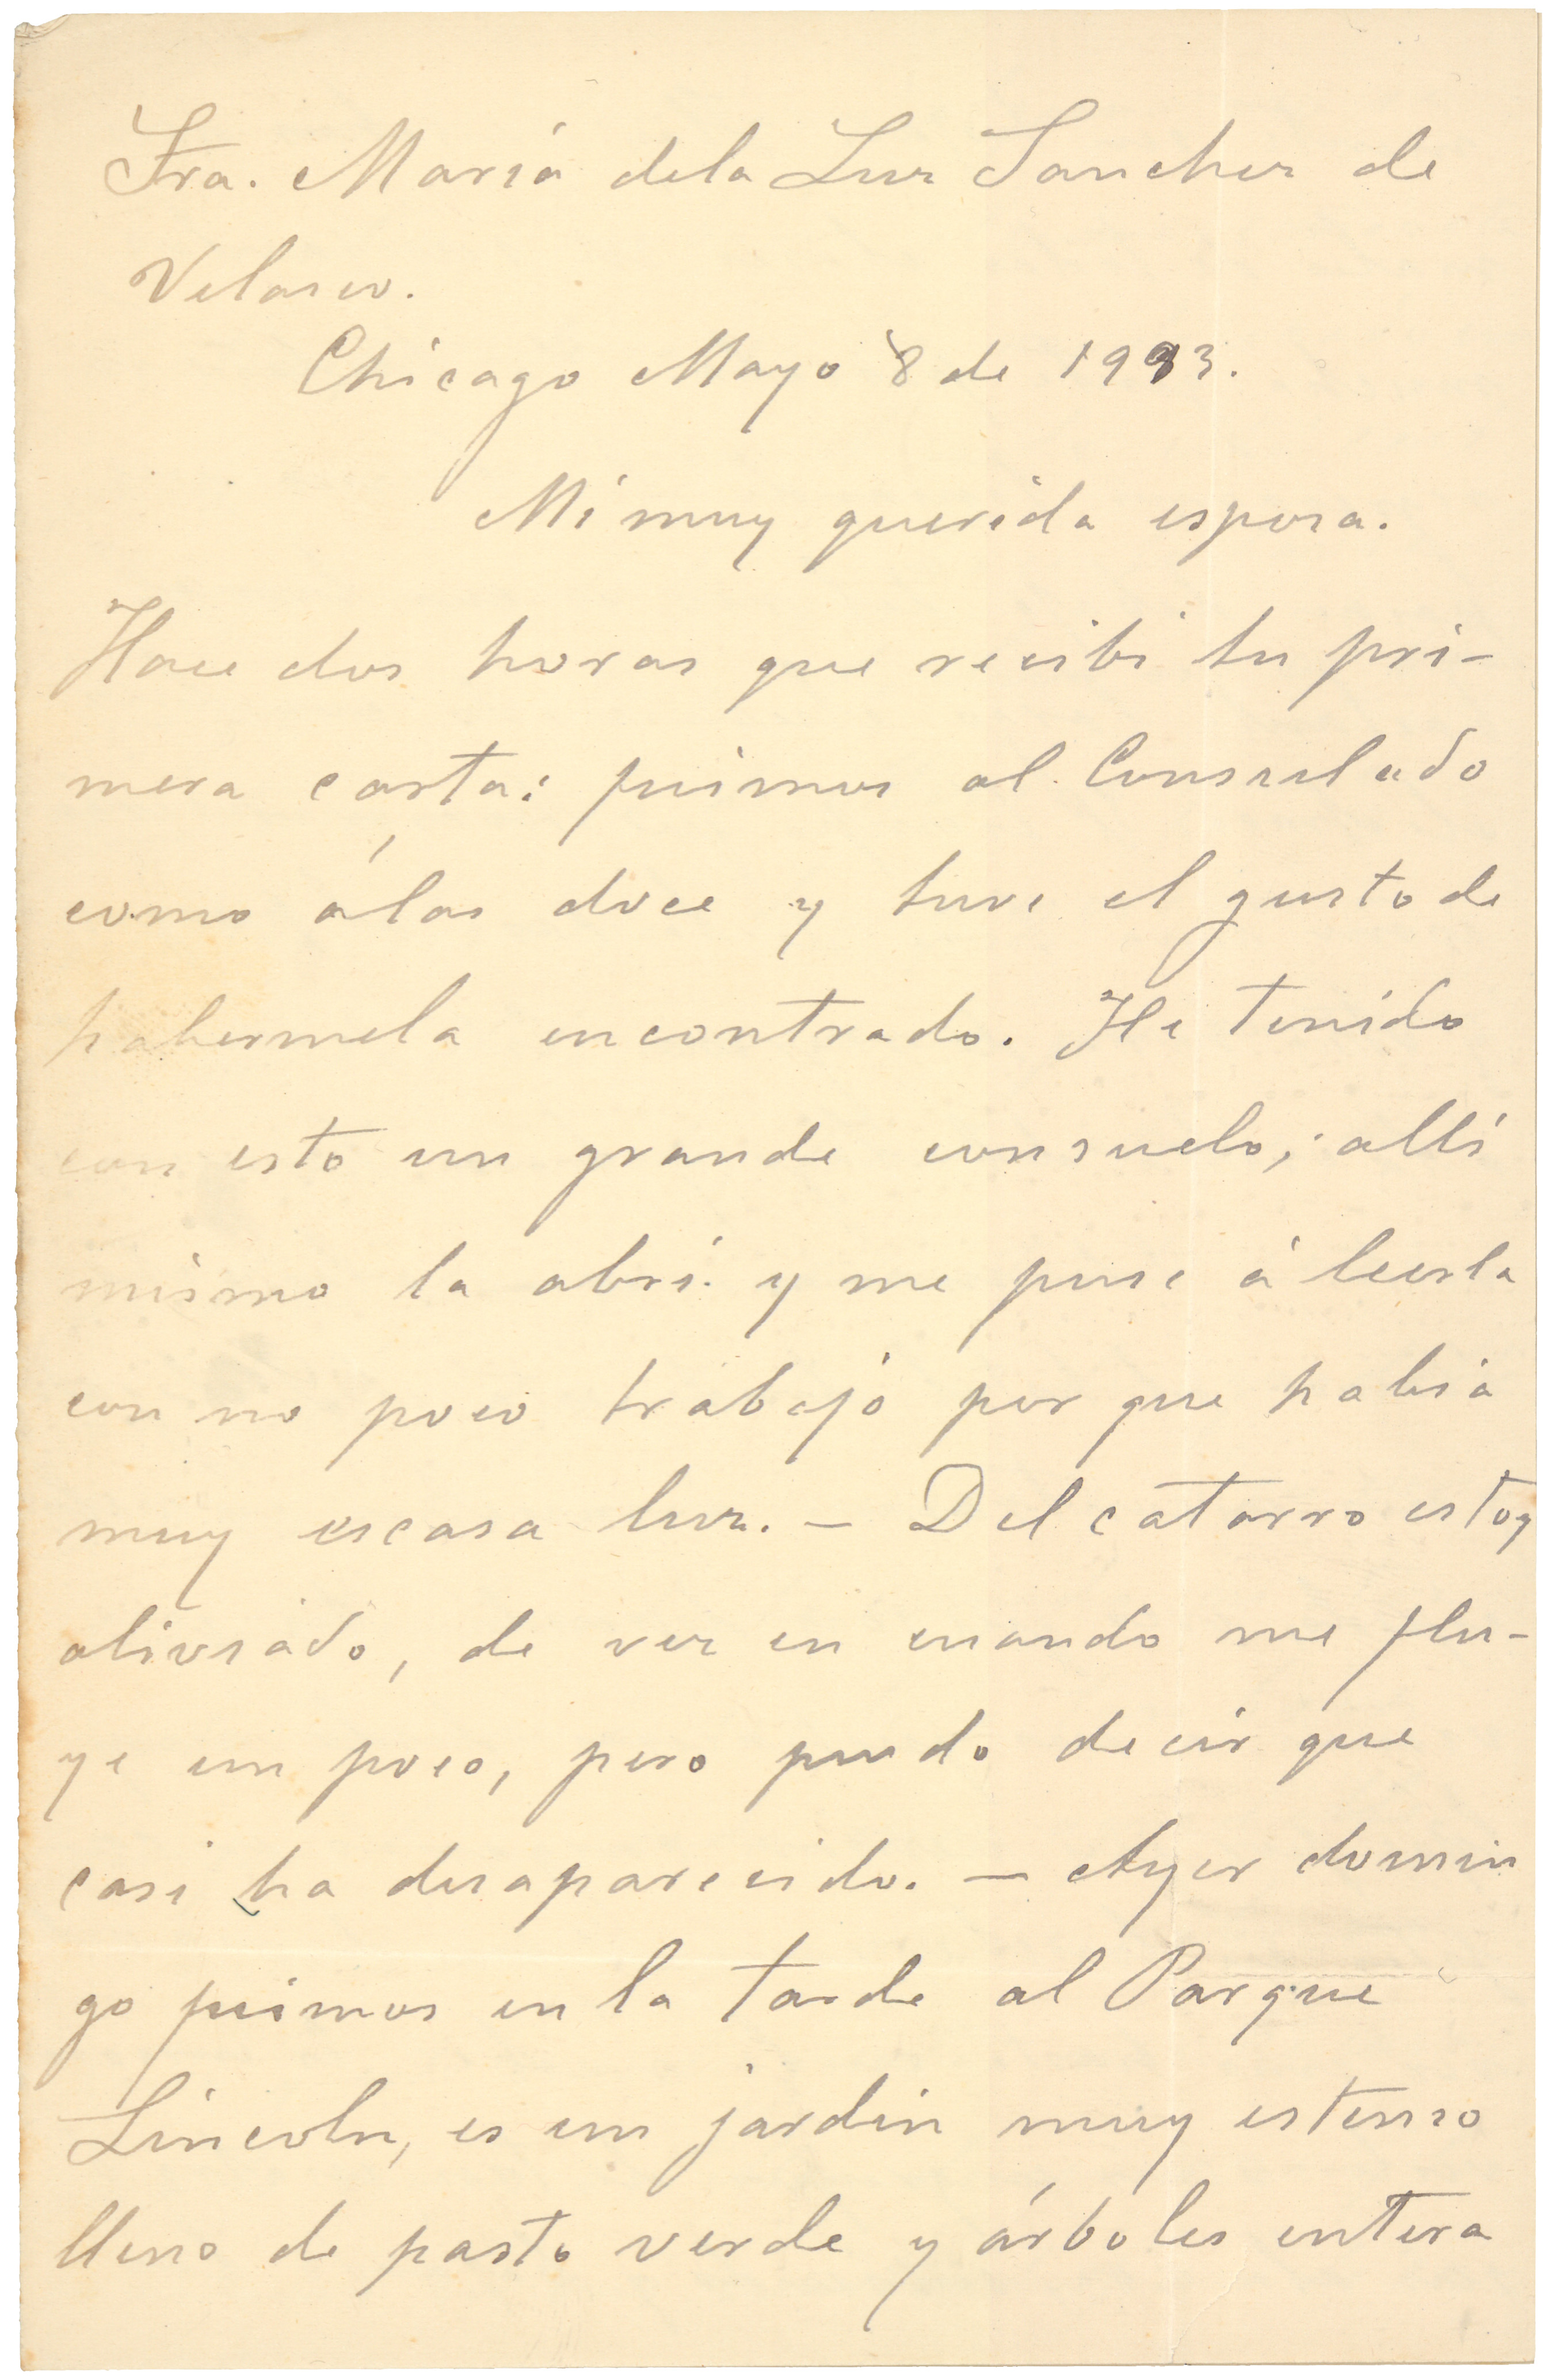 Sra. María dela Luz Sanchez de
Velasco.
Chicago Mayo 8 de 1993.
Mi muy querida esposa.
Hace dos horas que recibi tu pri-
mera carta: fuimos al Consulado
como á las doce y tuve el gusto de
habermela encontrado. He tenido
con esto un grande consuelo; allí
mismo la abrí y me puse á leerla
con no poco trabajo por que había
muy escasa luz. — Del catarro estoy
aliviado, de vez en cuando me flu-
ye un poco, pero puedo decir que
casi ha desaparecido. — Ayer domin
go fuimos en la tarde al Parque
Lincoln, es un jardin muy estenso
lleno de pasto verde y árboles entera